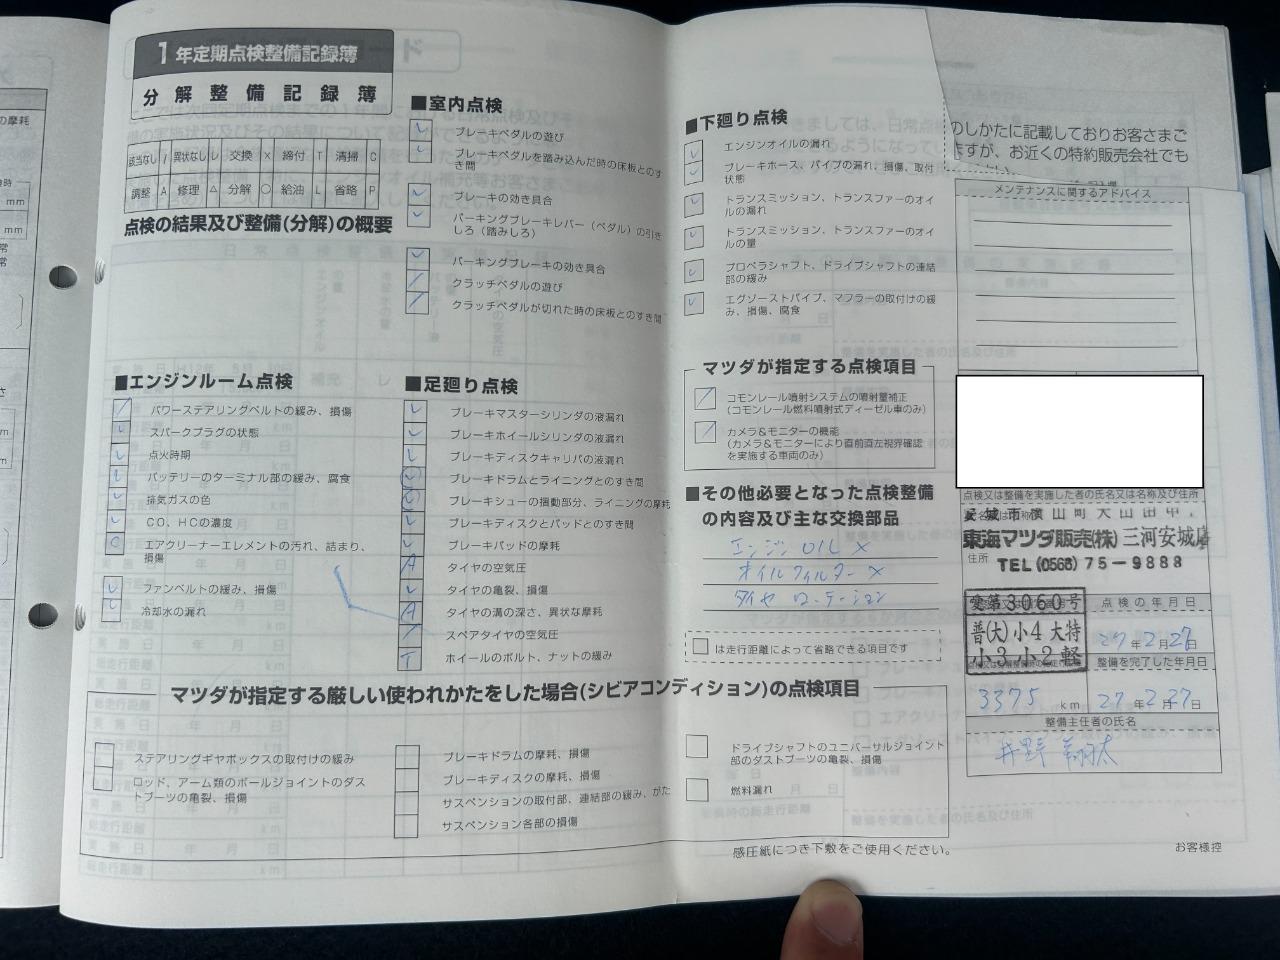 1年定期点検整備記録簿
分解整備記録簿
該当なし / 異状なし レ 交換 × 締付 T 清掃 C
調整 A 修理 △ 分解 ○ 給油 L 省略 P
点検の結果及び整備(分解)の概要
■エンジンルーム点検
/ パワーステアリングベルトの緩み、損傷
レ スパークプラグの状態
レ 点火時期
レ バッテリーのターミナル部の緩み、腐食
レ 排気ガスの色
レ CO、HCの濃度
C エアクリーナーエレメントの汚れ、詰まり、
損傷
レ ファンベルトの緩み、損傷
レ 冷却水の漏れ
■室内点検
レ ブレーキペダルの遊び
レ ブレーキペダルを踏み込んだ時の床板とのす
き間
レ ブレーキの効き具合
レ パーキングブレーキレバー(ペダル)の引き
しろ(踏みしろ)
レ パーキングブレーキの効き具合
/ クラッチペダルの遊び
/ クラッチペダルが切れた時の床板とのすき間
■足廻り点検
レ ブレーキマスターシリンダの液漏れ
レ ブレーキホイールシリンダの液漏れ
レ ブレーキディスクキャリパの液漏れ
レ ブレーキドラムとライニングとのすき間
レ ブレーキシューの摺動部分、ライニングの摩耗
レ ブレーキディスクとパッドとのすき間
レ ブレーキパッドの摩耗
A タイヤの空気圧
レ タイヤの亀裂、損傷
A タイヤの溝の深さ、異状な摩耗
/ スペアタイヤの空気圧
T ホイールのボルト、ナットの緩み
■下廻り点検
レ エンジンオイルの漏れ
レ ブレーキホース、パイプの漏れ、損傷、取付
状態
レ トランスミッション、トランスファーのオイ
ルの漏れ
レ トランスミッション、トランスファーのオイ
ルの量
レ プロペラシャフト、ドライブシャフトの連結
部の緩み
レ エグゾーストパイプ、マフラーの取付けの緩
み、損傷、腐食
マツダが指定する点検項目
/ コモンレール噴射システムの噴射量補正
(コモンレール燃料噴射式ディーゼル車のみ)
/ カメラ&モニターの機能
(カメラ&モニターにより直前直左視界確認
を実施する車両のみ)
■その他必要となった点検整備
の内容及び主な交換部品
エンジンOIL ×
オイルフィルター ×
タイヤ ローテーション
は走行距離によって省略できる項目です
マツダが指定する厳しい使われかたをした場合(シビアコンディション)の点検項目
ステアリングギヤボックスの取付けの緩み
ロッド、アーム類のボールジョイントのダス
トブーツの亀裂、損傷
ブレーキドラムの摩耗、損傷
ブレーキディスクの摩耗、損傷
サスペンションの取付部、連結部の緩み、がた
サスペンション各部の損傷
ドライブシャフトのユニバーサルジョイント
部のダストブーツの亀裂、損傷
燃料漏れ
感圧紙につき下敷をご使用ください。
のしかたに記載しておりお客さまご
ますが、お近くの特約販売会社でも
メンテナンスに関するアドバイス
点検又は整備を実施した者の氏名又は名称及び住所
東海マツダ販売(株)三河安城店
住所 TEL(0566)75-9888
愛第3060号
普(大)小4 大特
小3 小2 軽
点検の年月日
27年2月27日
整備を完了した年月日
3375 km 27年2月27日
整備主任者の氏名
お客様控